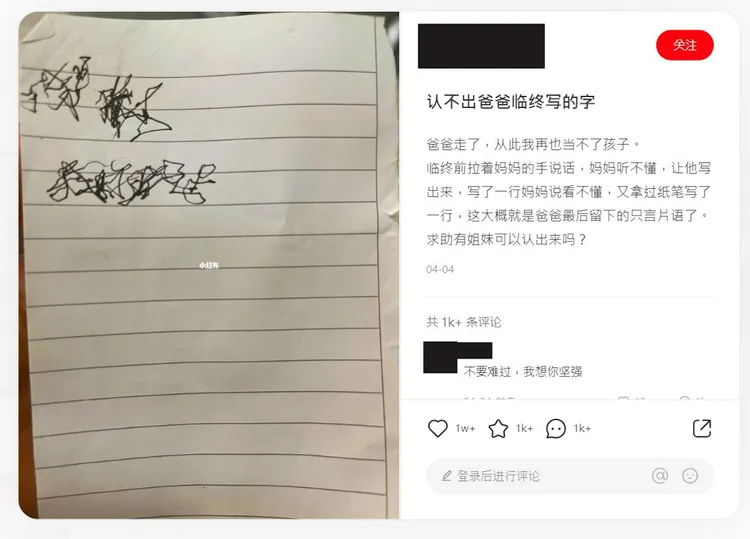 关注
认不出爸爸临终写的字
爸爸走了，从此我再也当不了孩子。
临终前拉着妈妈的手说话，妈妈听不懂，让他写
出来，写了一行妈妈说看不懂，又拿过纸笔写了
一行，这大概就是爸爸最后留下的只言片语了。
求助有姐妹可以认出来吗？
04-04
共 1k+ 条评论
不要难过，我想你坚强
1w+ 1k+ 1k+
登录后进行评论
小红书